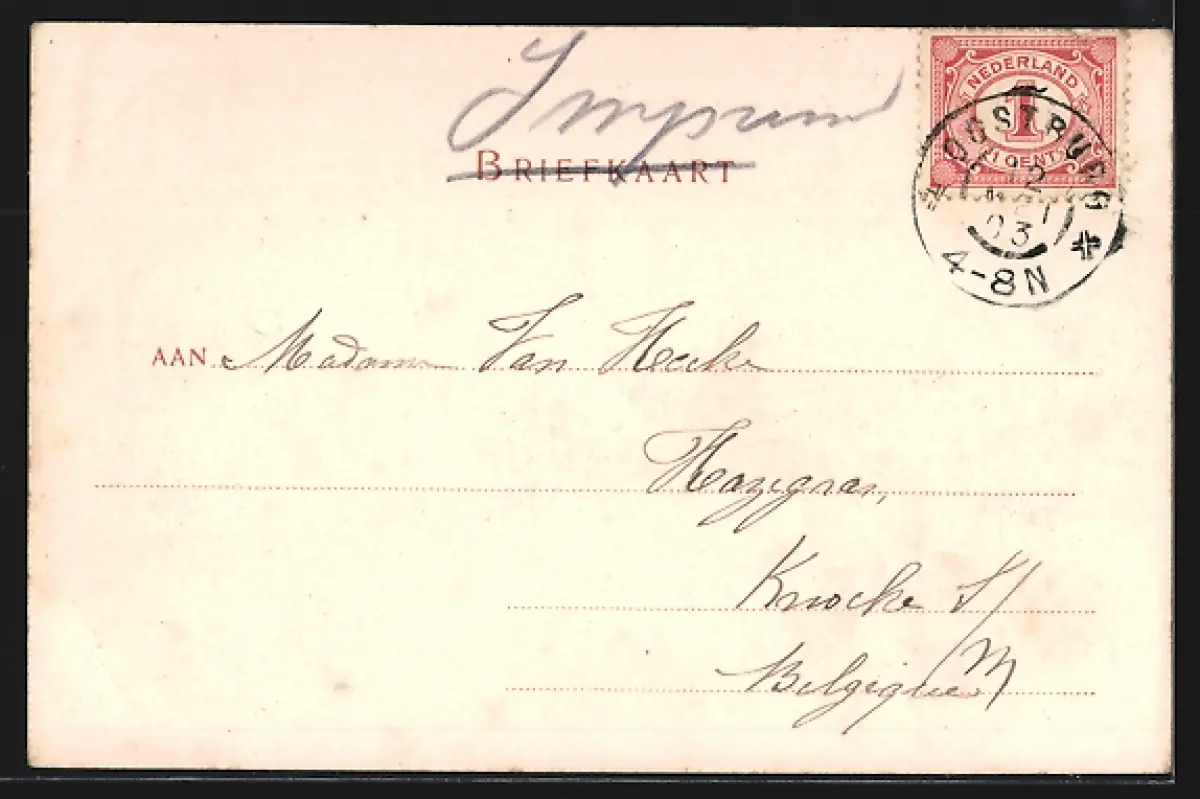 NEDERLAND
1
1 CENT
OOSTBURG
12
03
4-8N
BRIEFKAART
AAN Madame Van Hecke
Hazegras,
Knocke S/M
Belgique